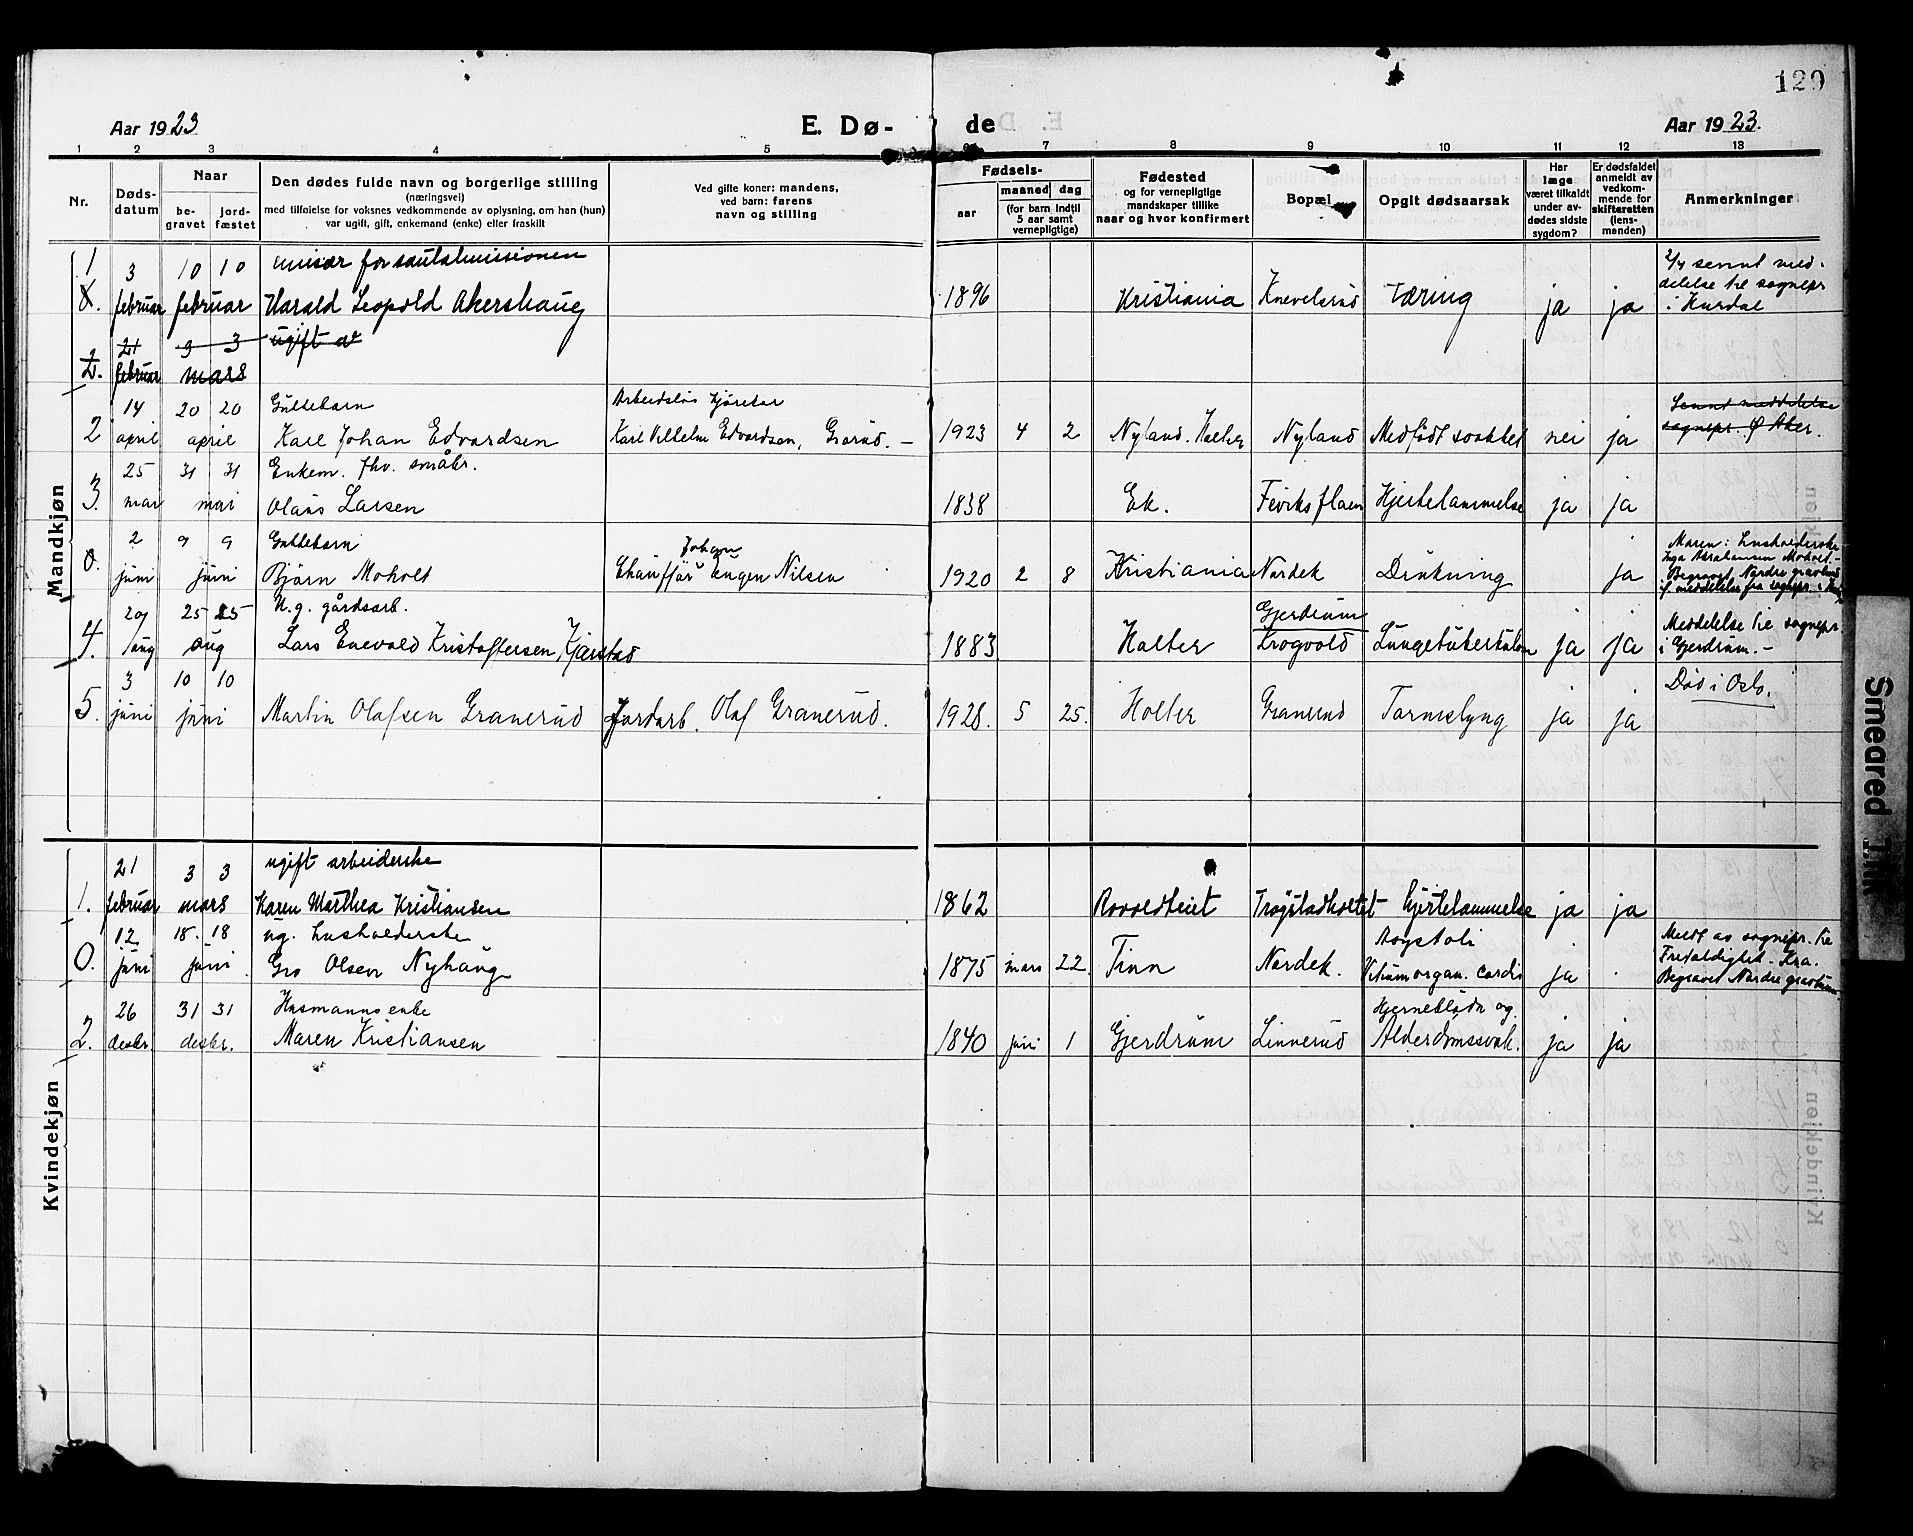 129
Aar 1923
E. Dø-
de
Aar 1923.
1 2 3 4 5 7 8 9 10 11 12 13
Nr.
Døds-
datum
Naar
be-
gravet
jord-
fæstet
Den dødes fulde navn og borgerlige stilling
(næringsvei)
med tilføielse for voksnes vedkommende av oplysning, om han (hun)
var ugift, gift, enkemand (enke) eller fraskilt
Ved gifte koner: mandens,
ved barn: farens
navn og stilling
Fødsels-
aar
maaned dag
(for barn indtil
5 aar samt
vernepligtige)
Fødested
og for vernepligtige
mandskaper tillike
naar og hvor konfirmert
Bopæl
Opgit dødsaarsak
Har
læge
været tilkaldt
under av-
dødes sidste
sygdom?
Er dødsfaldet
anmeldt av
vedkom-
mende for
skifteretten
(lens-
manden)
Anmerkninger
Mandkjøn
1 3 10 10 for
februar februar Harald Leopold Akershaug 1896 Kristiania Tæring ja ja
2/4 sennt med-
delelse til sognepr
i Hurdal
2. 21 3 3 ugift
februar mars
14 20 20 Guttebarn Arbeidsløs kjørekar
2 april april Karl Johan Edvardsen Karl Vilhelm Edvardsen, 1923 4 2 Nyland. Holter Nyland Medfødt svakhet nei ja
Sennt meddelelse
sognepr. Ø Aker.
25 31 31 Enkem. fhv. småbr.
3. mai mai Olaus Larsen 1838 Ek. Hjertelammelse ja ja
2 9 9 Guttebarn Johan
0. juni juni Bjørn Moholt Chauffør Eugen Nilsen 1920 2 8 Kristiania Nordek Drukning ja
Moren: husholderske
Inga Abrahamsen Moholt.-
Begravet Nordre gravlund
meddelelse fra sognepr. i
25 25 U.g. gårdsarb. Gjerdrum
4. aug aug Lars Enevald Kristoffersen, Kjærstad 1883 Holter Krogvold Lungetuberkulose ja ja
Meddelelse til sognepr.
i Gjerdrum.-
3 10 10
5. juni juni Martin Olafsen Granerud Jordarb. Olaf Granerud. 1928. 5 25. Holter Granerud Tarmslyng ja ja
Død i Oslo.
Kvindekjøn
21 3 3 ugift arbeiderske
1. februar mars Karen Marthea Kristiansen 1862 Trøgstadholtet hjertelammelse ja ja
12 18 18 ug. husholderske Asystoli
0. juni juni Gro Olsen Nyhaug 1875 mars 22. Tinn Nordek. Vitium organ. cordis ja
Medt av sognepr. til
Trefoldighet. Kra.
Begravet Nordre gravlund.
26 31 31 Husmannsenke Hjerneblødn og
2. desbr. desbr. Maren Kristiansen 1840 juni 1 Gjerdrum Linnerud Alderdomssvak. ja ja
Smeared Ink